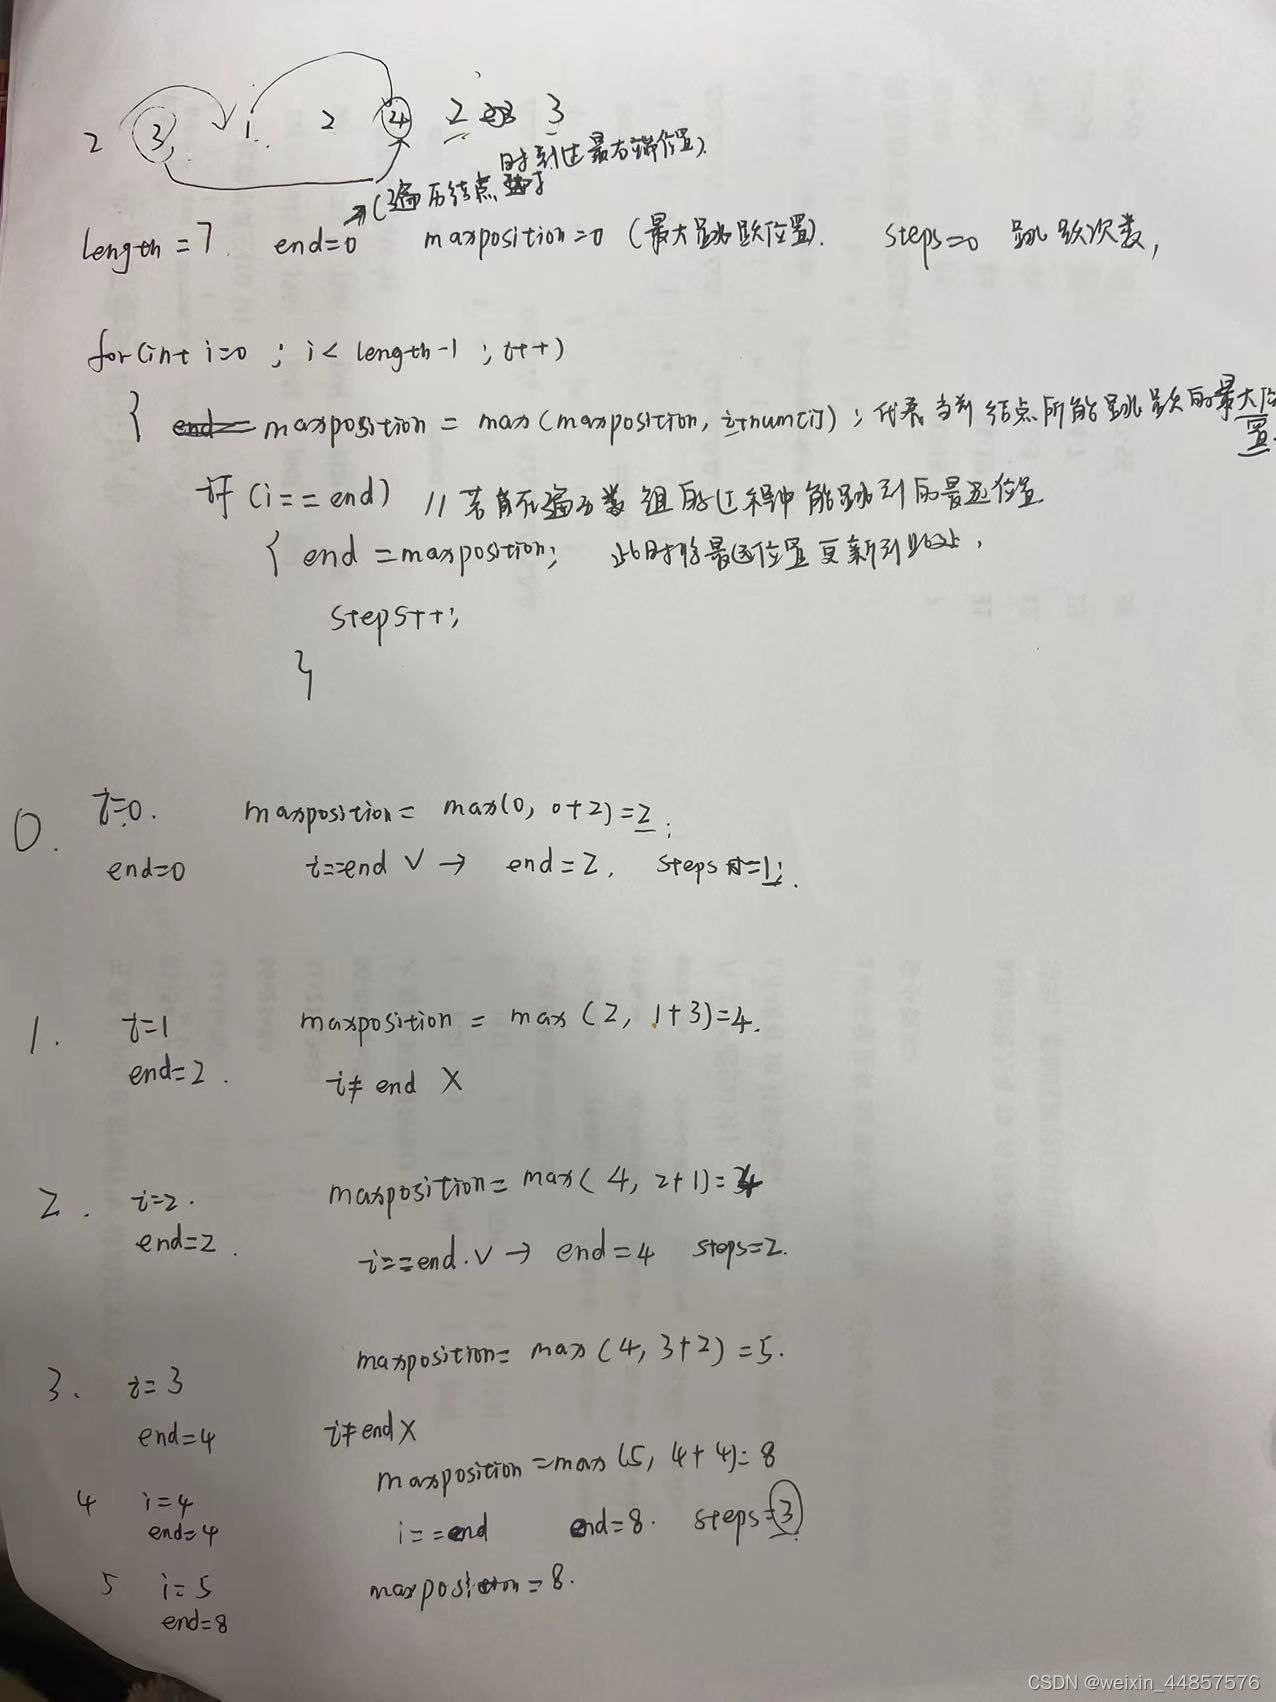 2 3 1 2 4 2 3
时到达最右端位置).
(遍历结点
length=7. end=0 maxposition=0 (最大跳跃位置). steps=0 跳跃次数,
for(int i=0 ; i< length-1 ; i++)
{ maxposition = max(maxposition, i+num[i]) ; 代表当前结点所能跳跃的最大位
置.
if (i==end) // 若 在遍历数组的过程中能跳到的最远位置
{ end =maxposition; 此时将最远位置更新到此处,
steps++;
}
0. i=0. maxposition= max(0, 0+2)=2;
end=0 i==end √ → end=2, steps=1;.
1. i=1 maxposition = max (2, 1+3)=4.
end=2. i≠ end X
2. i=2. maxposition= max( 4, 2+1)=4
end=2. i==end.√ → end=4 steps=2.
maxposition= max (4, 3+2) =5.
3. i=3
end=4 i≠end X
maxposition =max (5, 4+4)= 8
4 i=4
end=4 i==end end=8. steps=3
5 i=5 maxposition=8.
end=8
CSDN @weixin_44857576